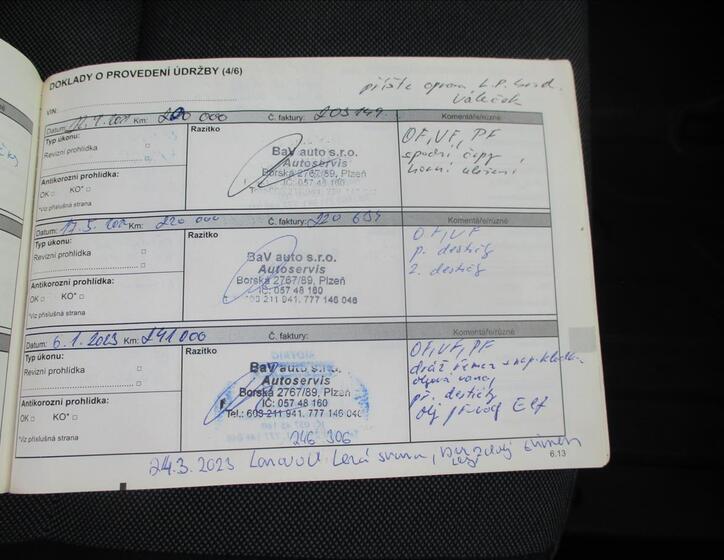 DOKLADY O PROVEDENÍ ÚDRŽBY (4/6)
příště
VIN:
Datum: Km: 200 000 Č. faktury: 203 149 Komentáře/různé
Typ úkonu: Razítko
Revizní prohlídka
Antikorozní prohlídka:
OK KO*
*Viz příslušná strana
BaV auto s.r.o.
Autoservis
Borská 2767/89, Plzeň
IČ: 057 48 160
OF, VF, PF
spodní čepy,
horní uložení
Datum: Km: 220 000 Č. faktury: 220 654 Komentáře/různé
Typ úkonu: Razítko
Revizní prohlídka
Antikorozní prohlídka:
OK KO*
*Viz příslušná strana
BaV auto s.r.o.
Autoservis
Borská 2767/89, Plzeň
IČ: 057 48 160
603 211 941, 777 146 046
OF, VF
p. destičky
z. destičky
Datum: 6.1.2023 Km: 241 000 Č. faktury: Komentáře/různé
Typ úkonu: Razítko
Revizní prohlídka
Antikorozní prohlídka:
OK KO*
*Viz příslušná strana
BaV auto s.r.o.
Autoservis
Borská 2767/89, Plzeň
IČ: 057 48 160
Tel.: 603 211 941, 777 146 046
OF, VF, PF
olejová vana,
př. destičky
olej převod Elf
246 306
24.3.2023 Levá strana,
6.13